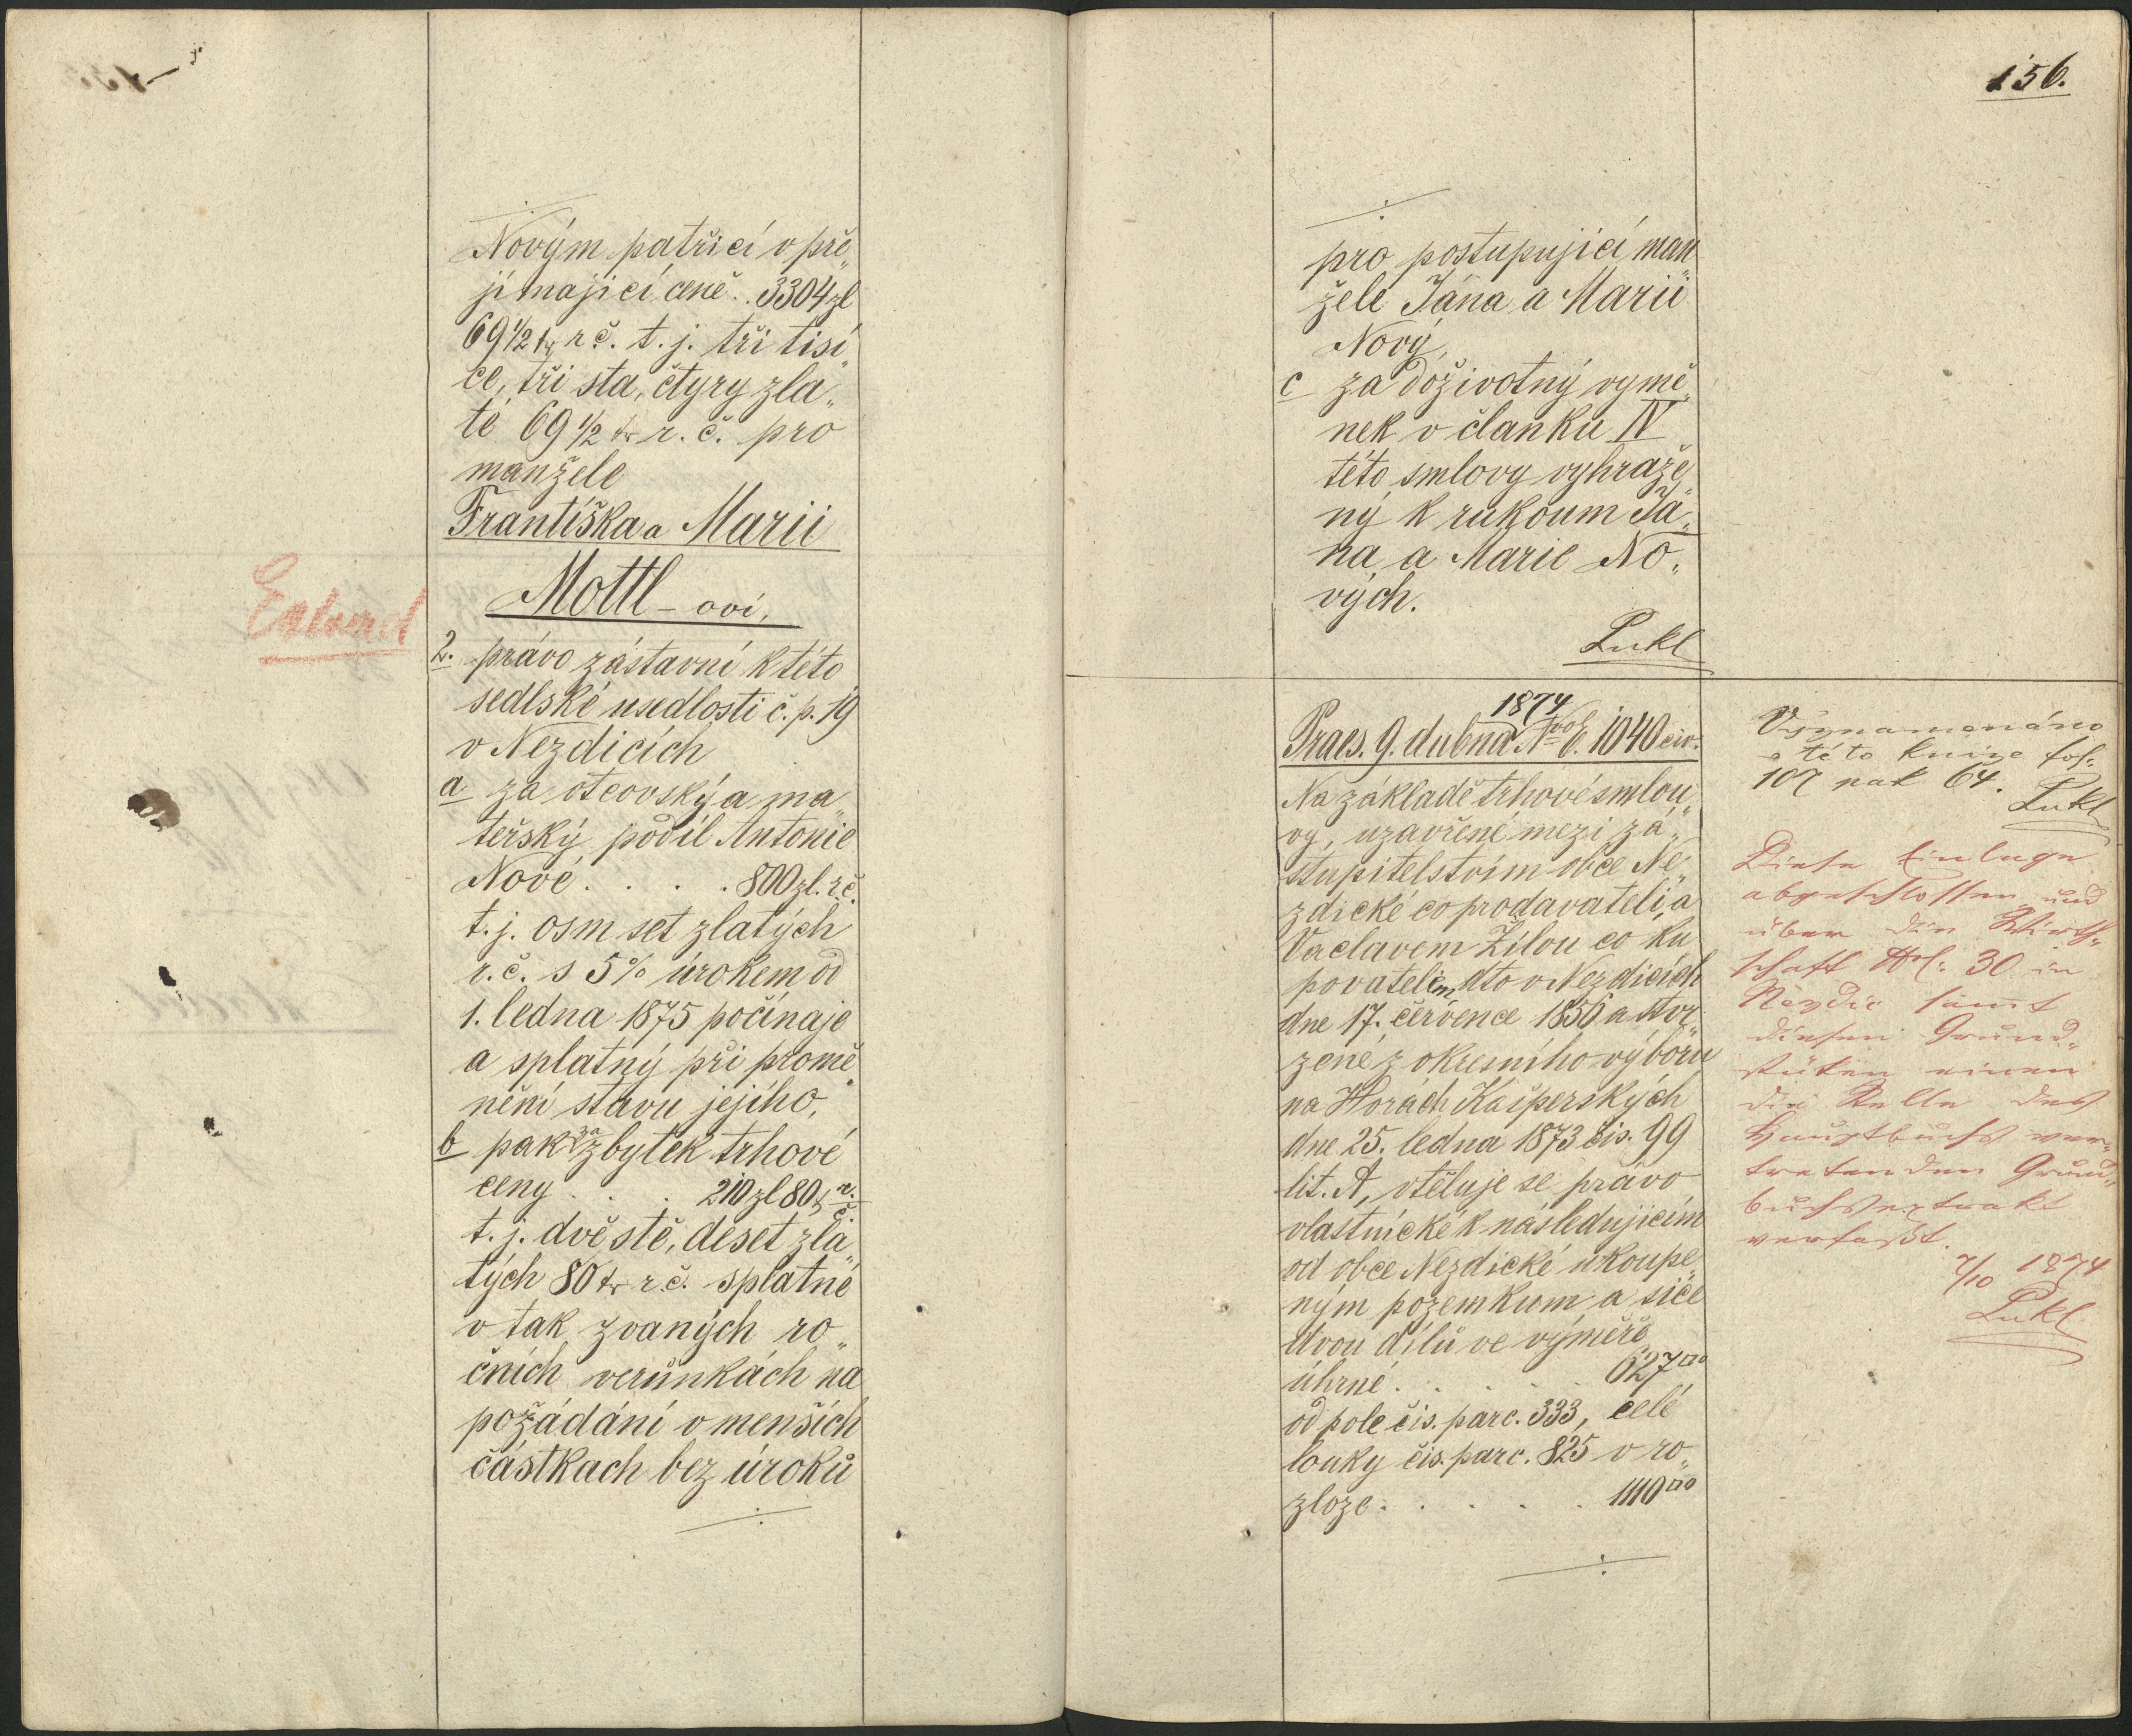 Novým patřící v pře„
jímající ceně.. 3304 zl
69 1/2 kr r č. t. j. tři tisí„
ce, tři sta, čtyry zla„
té 69 1/2 kr r. č. pro
manžele
Františka a Marii
Mottl-ovi,
2. právo zástavní k této
sedlské usedlosti č. p. 19
v Nezdicích
a za otcovský a ma„
teřský podíl Antonie
Nové . . . . 800 zl. r. č.
t. j. osm set zlatých
r. č. s 5% úrokem od
1. ledna 1875 počínaje
a splatný při promě„
nění stavu jejího,
b pak za zbytek trhové
ceny . . . 210 zl 80 kr r. č.
t. j. dvě stě, deset zla„
tých 80 kr r. č. splatné
v tak zvaných ro„
čních verůnkách na
požádání v menších
částkach bez úroků
156.
pro postupující man„
žele Jána a Marii
Nový,
c za doživotný vymě„
nek v članku IV
této smlovy vyhraže„
ný k rukoum Já„
na a Marie No„
vých.
Pukl
1874
Praes. 9. dubna No E. 1040 civ.
Na základě trhové smlou„
vy, uzavřené mezi zá„
stupitelstvím obce Ne„
zdické co prodavateli, a
Václavem Žílou co ku„
povatelem, dto v Nezdicích
dne 17. července 1856 a stvr„
zené z okresního výboru
na Horách Kašperských
dne 25. ledna 1873 čis. 99
lit. A, vtěluje se právo
vlastnické k následujícím
od obce Nezdické ukoupe„
ným pozemkum a sice
dvou dílů ve výměře
úhrné . . . . . 627□°
od pole čis. parc. 333, celé
louky čis. parc. 825 v ro„
zloze . . . . . 1110□°
Vyznamenáno
v této knize fol:
107 nat 64.
Pukl
Diese Einlage
abgeschlossen und
über die Wirth„
schaft No: 30 in
Nezdic sammt
diesen Grund„
stüken einen
die Stelle des
Hauptbuchs ver„
tretenden Grund„
buchsextrakt
verfaßt.
7/10 1874
Pukl